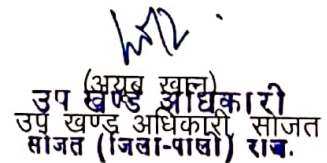 (अयूब खान)
उप खण्ड अधिकारी
उप खण्ड अधिकारी, सोजत
सोजत (जिला-पाली) राज.